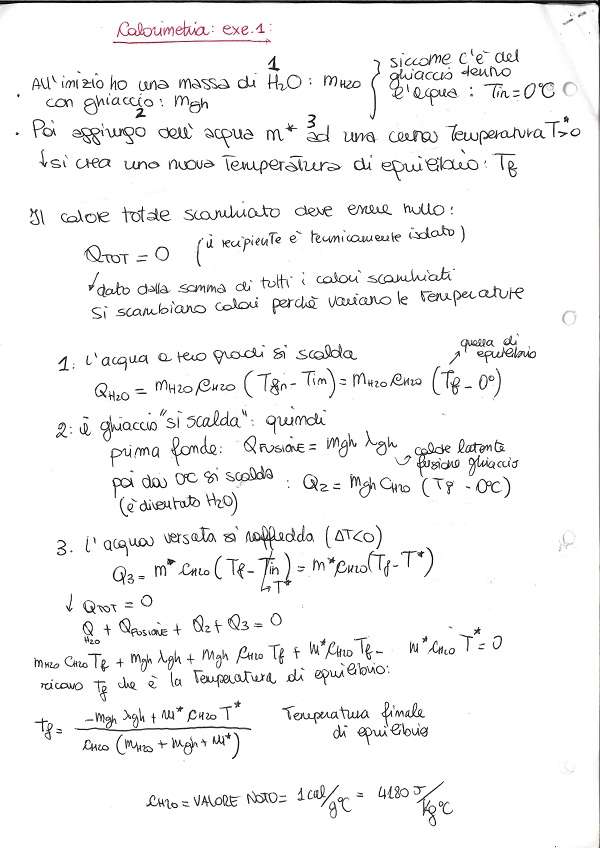 Calorimetria: exe.1:
1
All'inizio ho una massa di H2O: mH2O
con ghiaccio: mgh
2
siccome c'è del
ghiaccio dentro
l'acqua: Tin=0°C
3
. Poi aggiungo dell'acqua m* ad una certa Temperatura T*>0
↓si crea una nuova Temperatura di equilibrio: Tf
Il calore totale scambiato deve essere nullo:
QTOT = 0 (il recipiente è termicamente isolato)
↓dato dalla somma di tutti i calori scambiati
Si scambiano calori perchè variano le temperature
1: l'acqua a zero gradi si scalda
quella di
equilibrio
QH2O = mH2O CH2O (Tfin - Tin) = mH2O CH2O (Tf - 0°)
2: il ghiaccio "si scalda": quindi
prima fonde: QFUSIONE = mgh λgh
calore latente
fusione ghiaccio
poi da 0°C si scalda : Q2 = mgh CH2O (Tf - 0°C)
(è diventato H2O)
3. l'acqua versata si raffredda (ΔT<0)
Q3 = m* CH2O (Tf - Tin) = m* CH2O (Tf - T*)
↳T*
↓ QTOT = 0
QH2O + QFUSIONE + Q2 + Q3 = 0
mH2O CH2O Tf + mgh λgh + mgh CH2O Tf + m* CH2O Tf - m* CH2O T* = 0
ricavo Tf che è la Temperatura di equilibrio:
Tf = -mgh λgh + m* CH2O T* / CH2O (mH2O + mgh + m*)
Temperatura finale
di equilibrio
CH2O = VALORE NOTO = 1 cal/g°C = 4180 J/kg°C